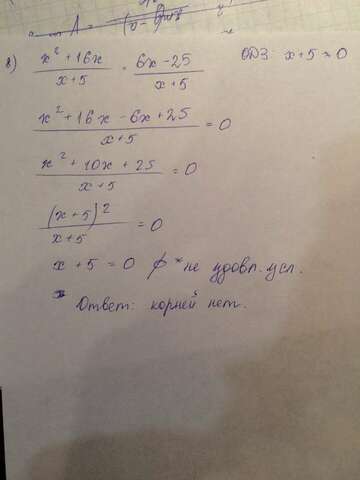 A = 
в) x² + 16x / x+5 - 6x - 25 / x+5   ОДЗ: x+5 ≠ 0
x² + 16x - 6x + 25 / x+5 = 0
x² + 10x + 25 / x+5 = 0
(x+5)² / x+5 = 0
x + 5 = 0 ∅ * не удовл. усл.
Ответ: корней нет.